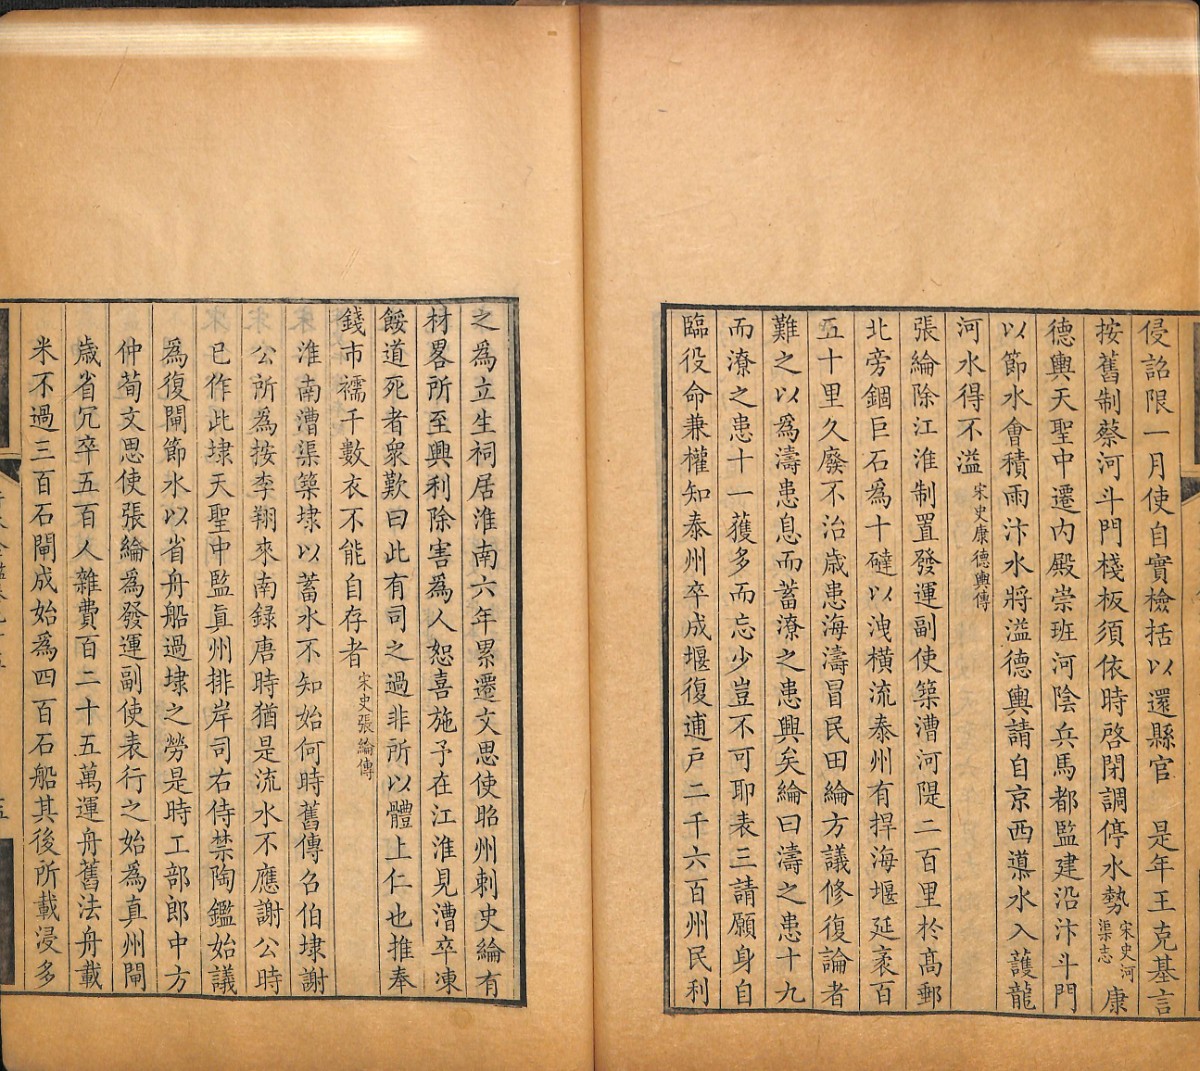 侵詔限一月使自實檢括以還縣官　是年王克基言
按舊制蔡河斗門棧板須依時啓閉調停水勢宋史河渠志康
德輿天聖中遷内殿崇班河陰兵馬都監建沿汴斗門
以節水會積雨汴水將溢德輿請自京西導水入護龍
河水得不溢宋史康德輿傳
張綸除江淮制置發運副使築漕河隄二百里於高郵
北旁錮巨石爲十䃮以洩横流泰州有捍海堰延袤百
五十里久廢不治歲患海濤冒民田綸方議修復論者
難之以爲濤患息而蓄潦之患興矣綸曰濤之患十九
而潦之患十一獲多而忘少豈不可耶表三請願身自
臨役命兼權知泰州卒成堰復逋戸二千六百州民利
之爲立生祠居淮南六年累遷文思使昭州刺史綸有
材畧所至興利除害爲人恕喜施予在江淮見漕卒凍
餒道死者衆歎曰此有司之過非所以體上仁也推奉
錢市襦千數衣不能自存者宋史張綸傳
淮南漕渠築埭以蓄水不知始何時舊傳召伯埭謝
公所爲按李翔來南録唐時猶是流水不應謝公時
已作此埭天聖中監眞州排岸司右侍禁陶鑑始議
爲復閘節水以省舟船過埭之勞是時工部郎中方
仲荀文思使張綸爲發運副使表行之始爲真州閘
歲省冗卒五百人雜費百二十五萬運舟舊法舟載
米不過三百石閘成始爲四百石船其後所載浸多